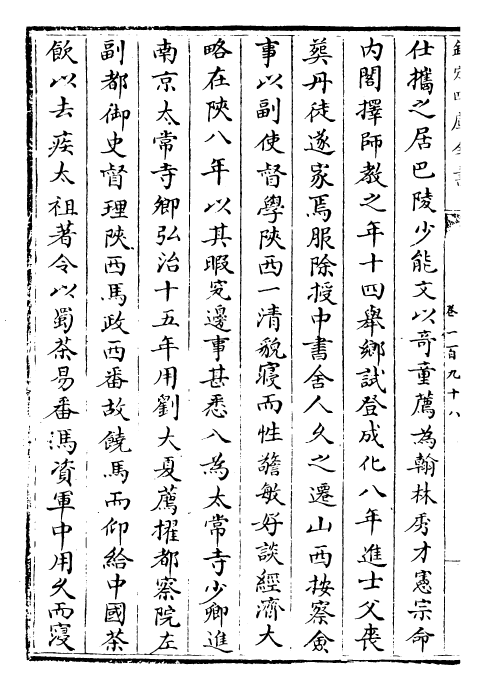 欽定四庫全書
卷一百九十八
仕攜之居巴陵少能文以奇童薦為翰林秀才憲宗命
内閣擇師教之年十四舉鄉試登成化八年進士父喪
葬丹徒遂家焉服除授中書舍人久之遷山西按察僉
事以副使督學陜西一清貌寢而性警敏好談經濟大
略在陜八年以其暇究邊事甚悉入為太常寺少卿進
南京太常寺卿弘治十五年用劉大夏薦擢都察院左
副都御史督理陜西馬政西番故饒馬而仰給中國茶
飲以去疾太祖著令以蜀茶易番馮資軍中用久而寖